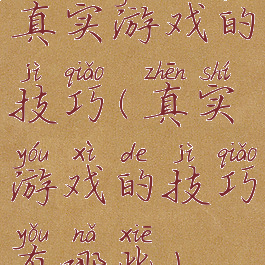 真实游戏的
jì qiǎo zhēn shí
技巧(真实
yóu xì de jì qiǎo
游戏的技巧
yǒu nǎ xiē
有哪些)